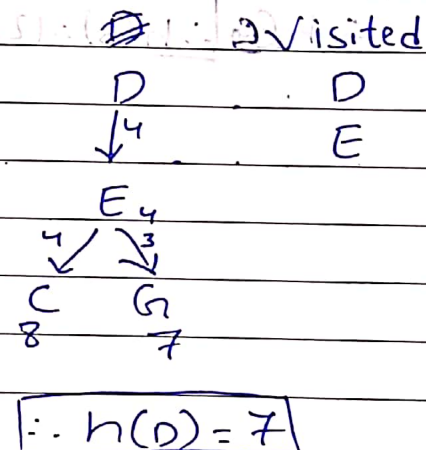 Visited
D D
4 E
E 4
4 3
C G
8 7
∴ h(D) = 7